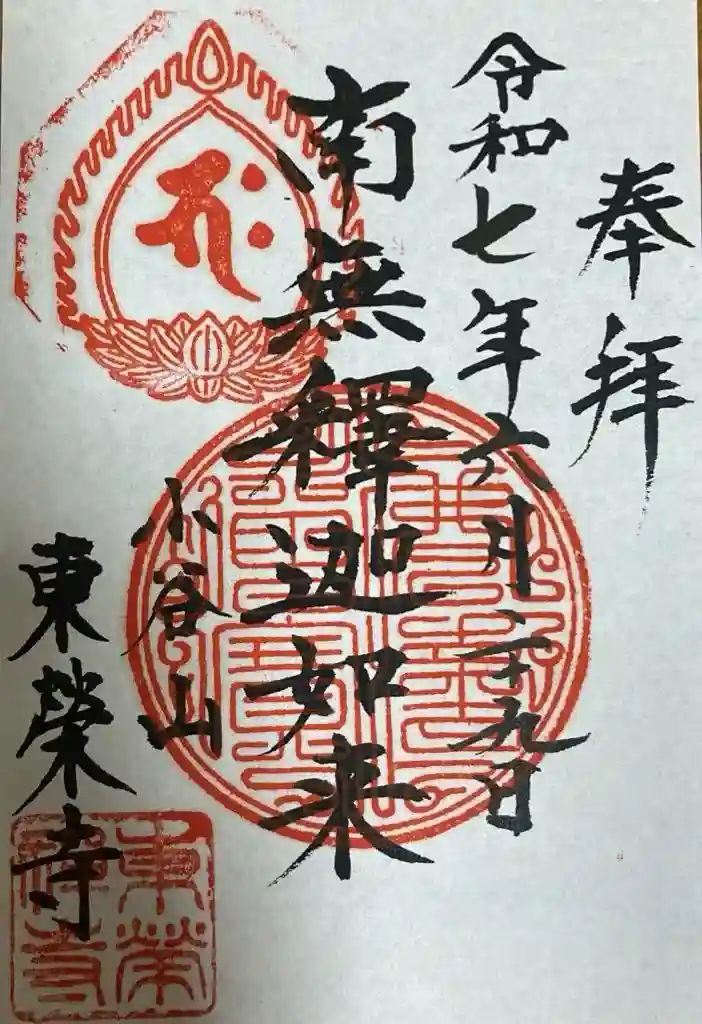 奉拜
令和七年六月二十九日
南無釋迦如来
小谷山
東榮寺
東榮禅寺